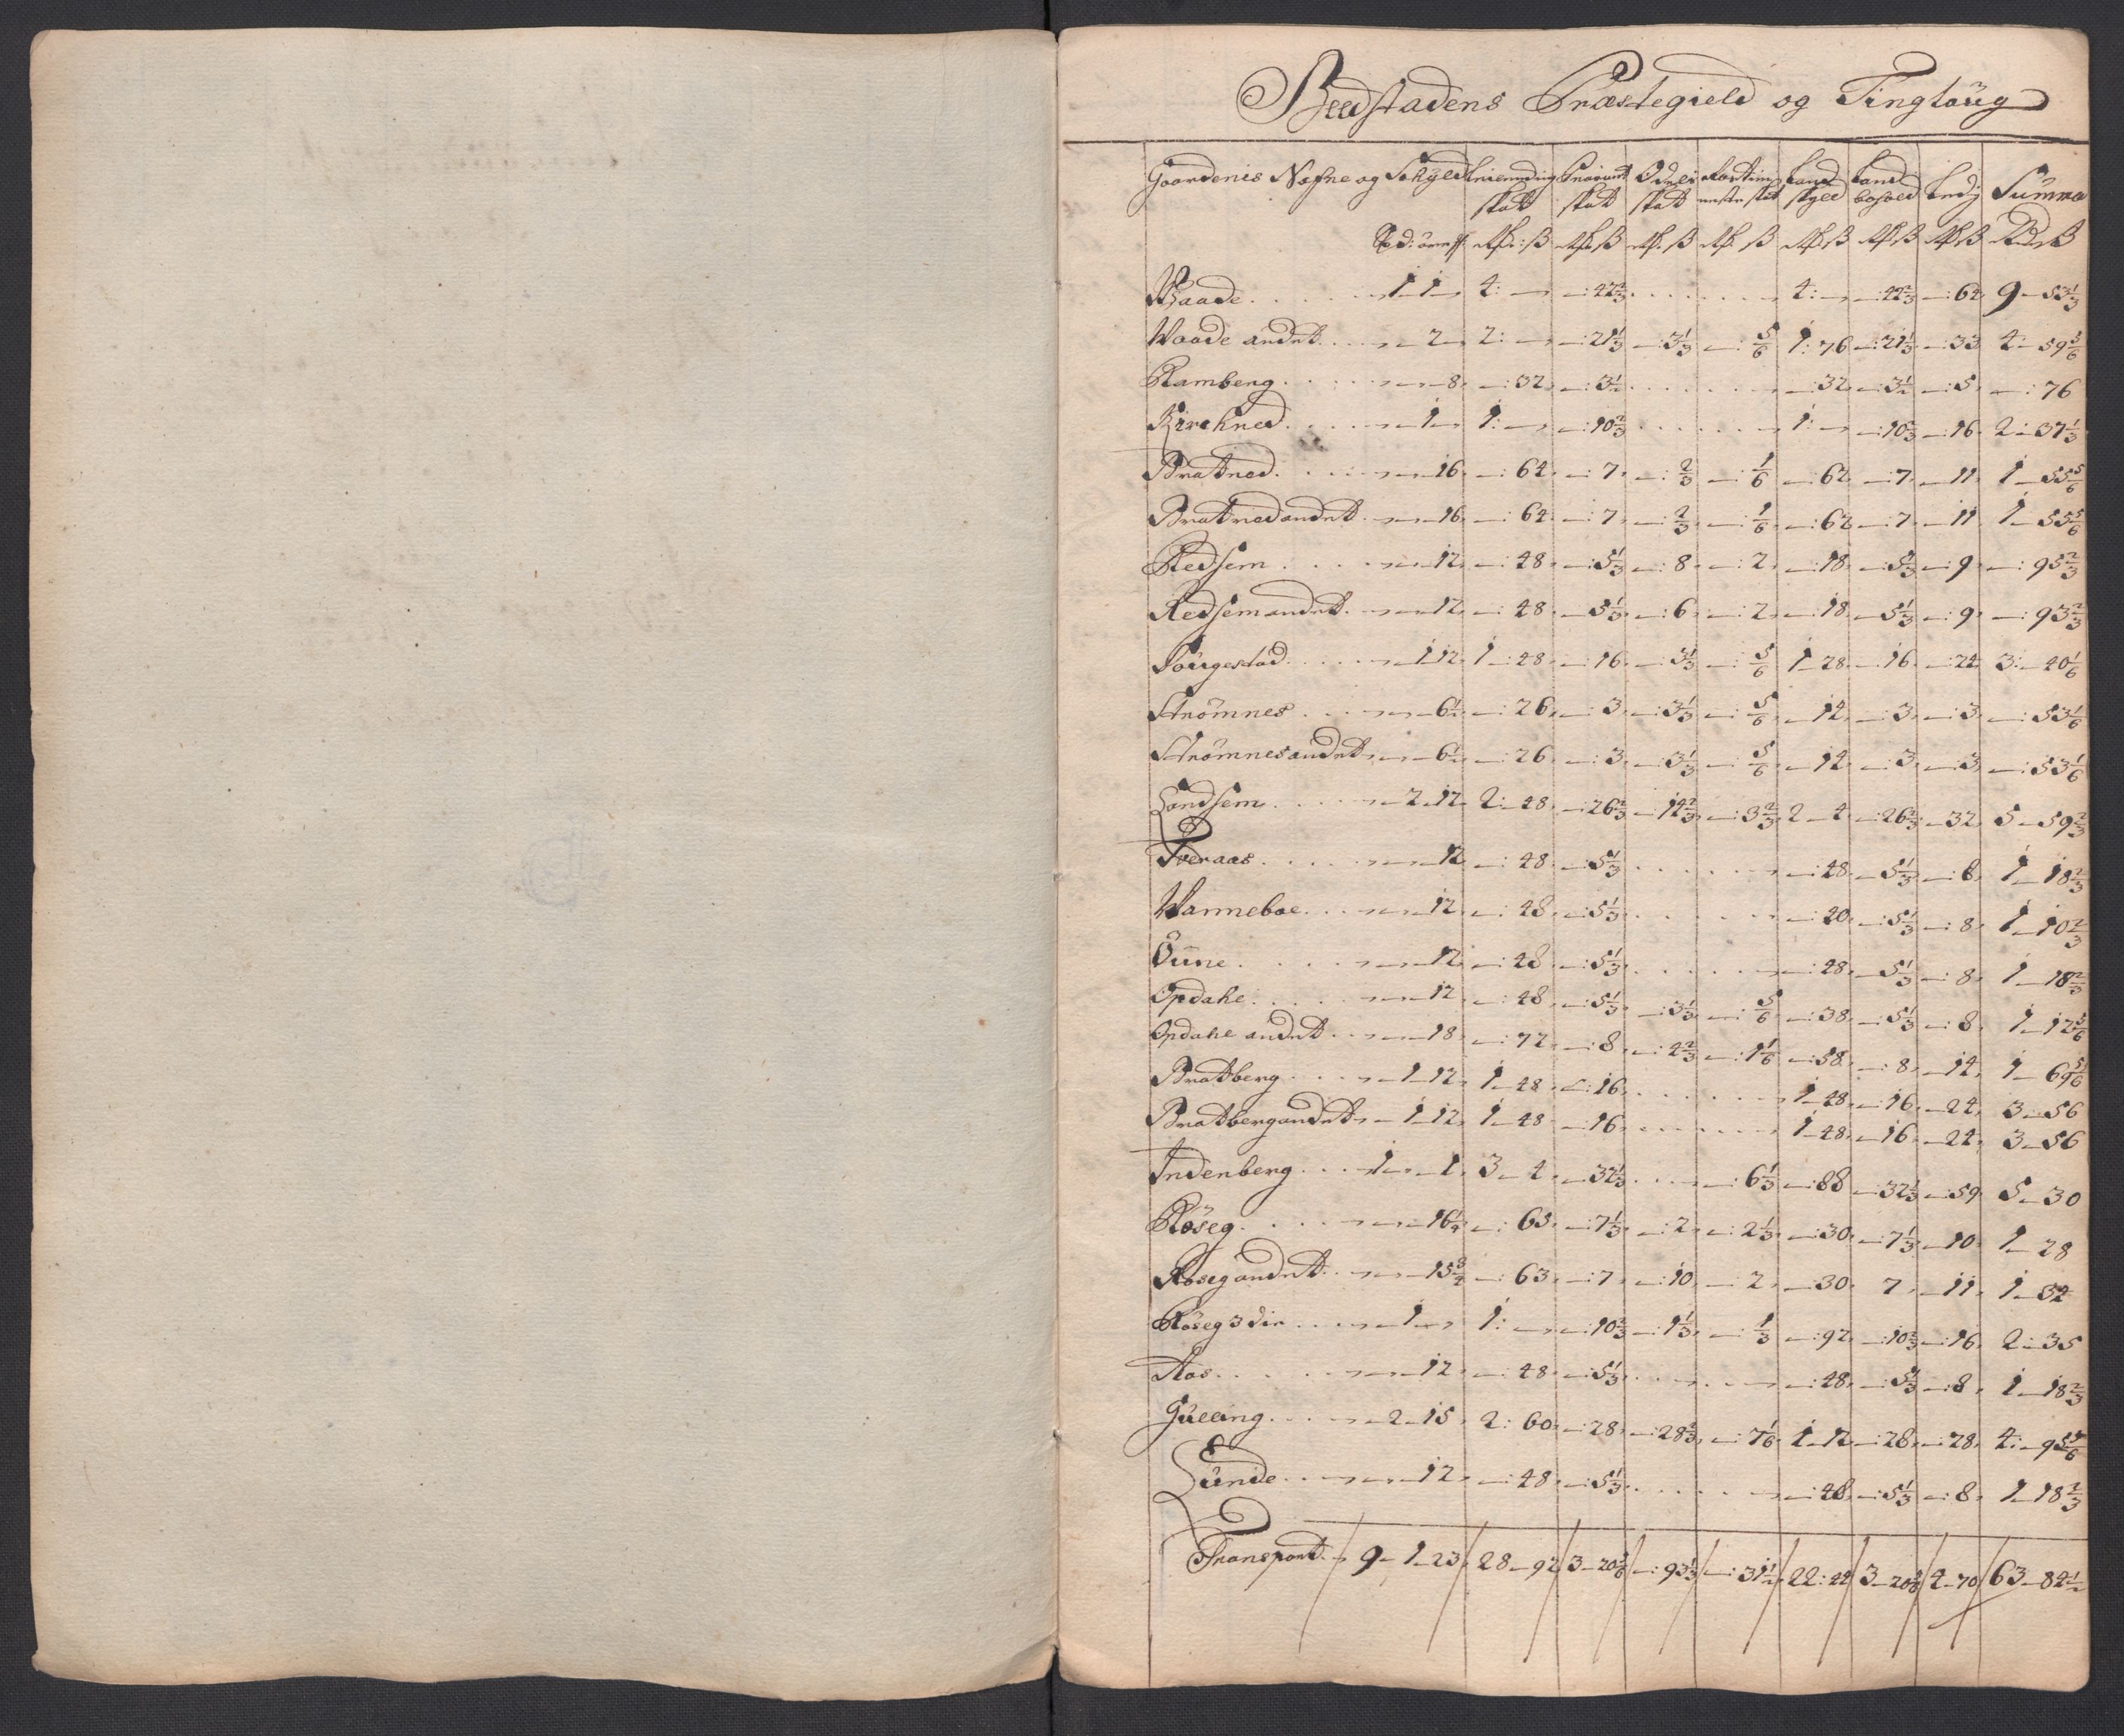 Beedstadens Præstegield og Tingläüg
Gaardenes Nafne og Schyld Leilending skat Proviant skat Odels skat Land skyld Land bohold Ledj Summa
Waade 1 1 4: — 42⅔ 4: — 42⅔ 64 9 — 53⅓
Waade andet 2 2: — 21⅓ 3⅓ ⅚ 1: 76 21⅓ 33 4 — 59⅚
Ramberg 8 32 3½ 32 3½ 5 76
Kirchned 1 1: — 10⅔ 1: — 10⅔ 16 2 — 37⅓
Bratned 16 64 7 ⅔ ⅙ 62 7 11 1 — 55⅚
Bratned andet 16 64 7 ⅔ ⅙ 62 7 11 1 — 55⅚
Redsem 12 48 5⅓ 8 2 18 5⅓ 9 95⅔
Redsem andet 12 48 5⅓ 6 2 18 5⅓ 9 93⅔
Sougestad 1 12 1 — 48 16 3⅓ ⅚ 1 28 16 24 3 — 40⅙
Strömnes 6½ 26 3 3⅓ ⅚ 14 3 3 53⅙
Strömnes andet 6½ 26 3 3⅓ ⅚ 14 3 3 53⅙
Landsem 2 12 2 — 48 26⅔ 14⅔ 3⅔ 2 — 4 26⅔ 32 5 — 59⅔
Tveraas 12 48 5⅓ 48 5⅓ 8 1 — 18⅔
Wanneboe 12 48 5⅓ 40 5⅓ 8 1 — 10⅔
Öune 12 48 5⅓ 48 5⅓ 8 1 — 18⅔
Opdahl 12 48 5⅓ 3⅓ ⅚ 38 5⅓ 8 1 — 12⅚
Opdahl andet 18 72 8 4⅔ 1⅙ 58 8 14 1 — 69⅚
Bratberg 1 12 1 — 48 16 1 — 48 16 24 3 — 56
Bratberg andet 1 12 1 — 48 16 1 — 48 16 24 3 — 56
Indenberg 1 — 1 3 — 4 32⅓ 6⅓ 88 32⅓ 59 5 — 30
Röseg 16¼ 65 7⅓ 2 2⅓ 30 7⅓ 10 1 — 28
Röseg andet 15¾ 63 7 10 2 30 7 11 1 — 34
Röseg 3die 1 1: — 10⅔ 1⅓ ⅓ 92 10⅔ 16 2 — 35
Aas 12 48 5⅓ 48 5⅓ 8 1 — 18⅔
Gulling 2 15 2: 60 28 28⅔ 7⅙ 1 — 12 28 28 4 — 95⅚
Lünde 12 48 5⅓ 48 5⅓ 8 1 — 18⅔
Transport 9 — 1 — 23 28 — 92 3 — 20⅚ 93⅓ 31½ 22: 44 3 — 20⅚ 4 — 70 63 — 84½